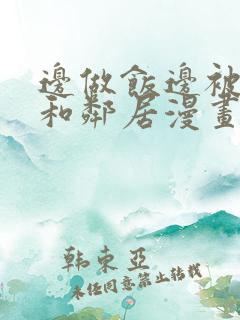 邊做飯邊被
和鄰居漫畫
韩束亞
未任同意禁止转载